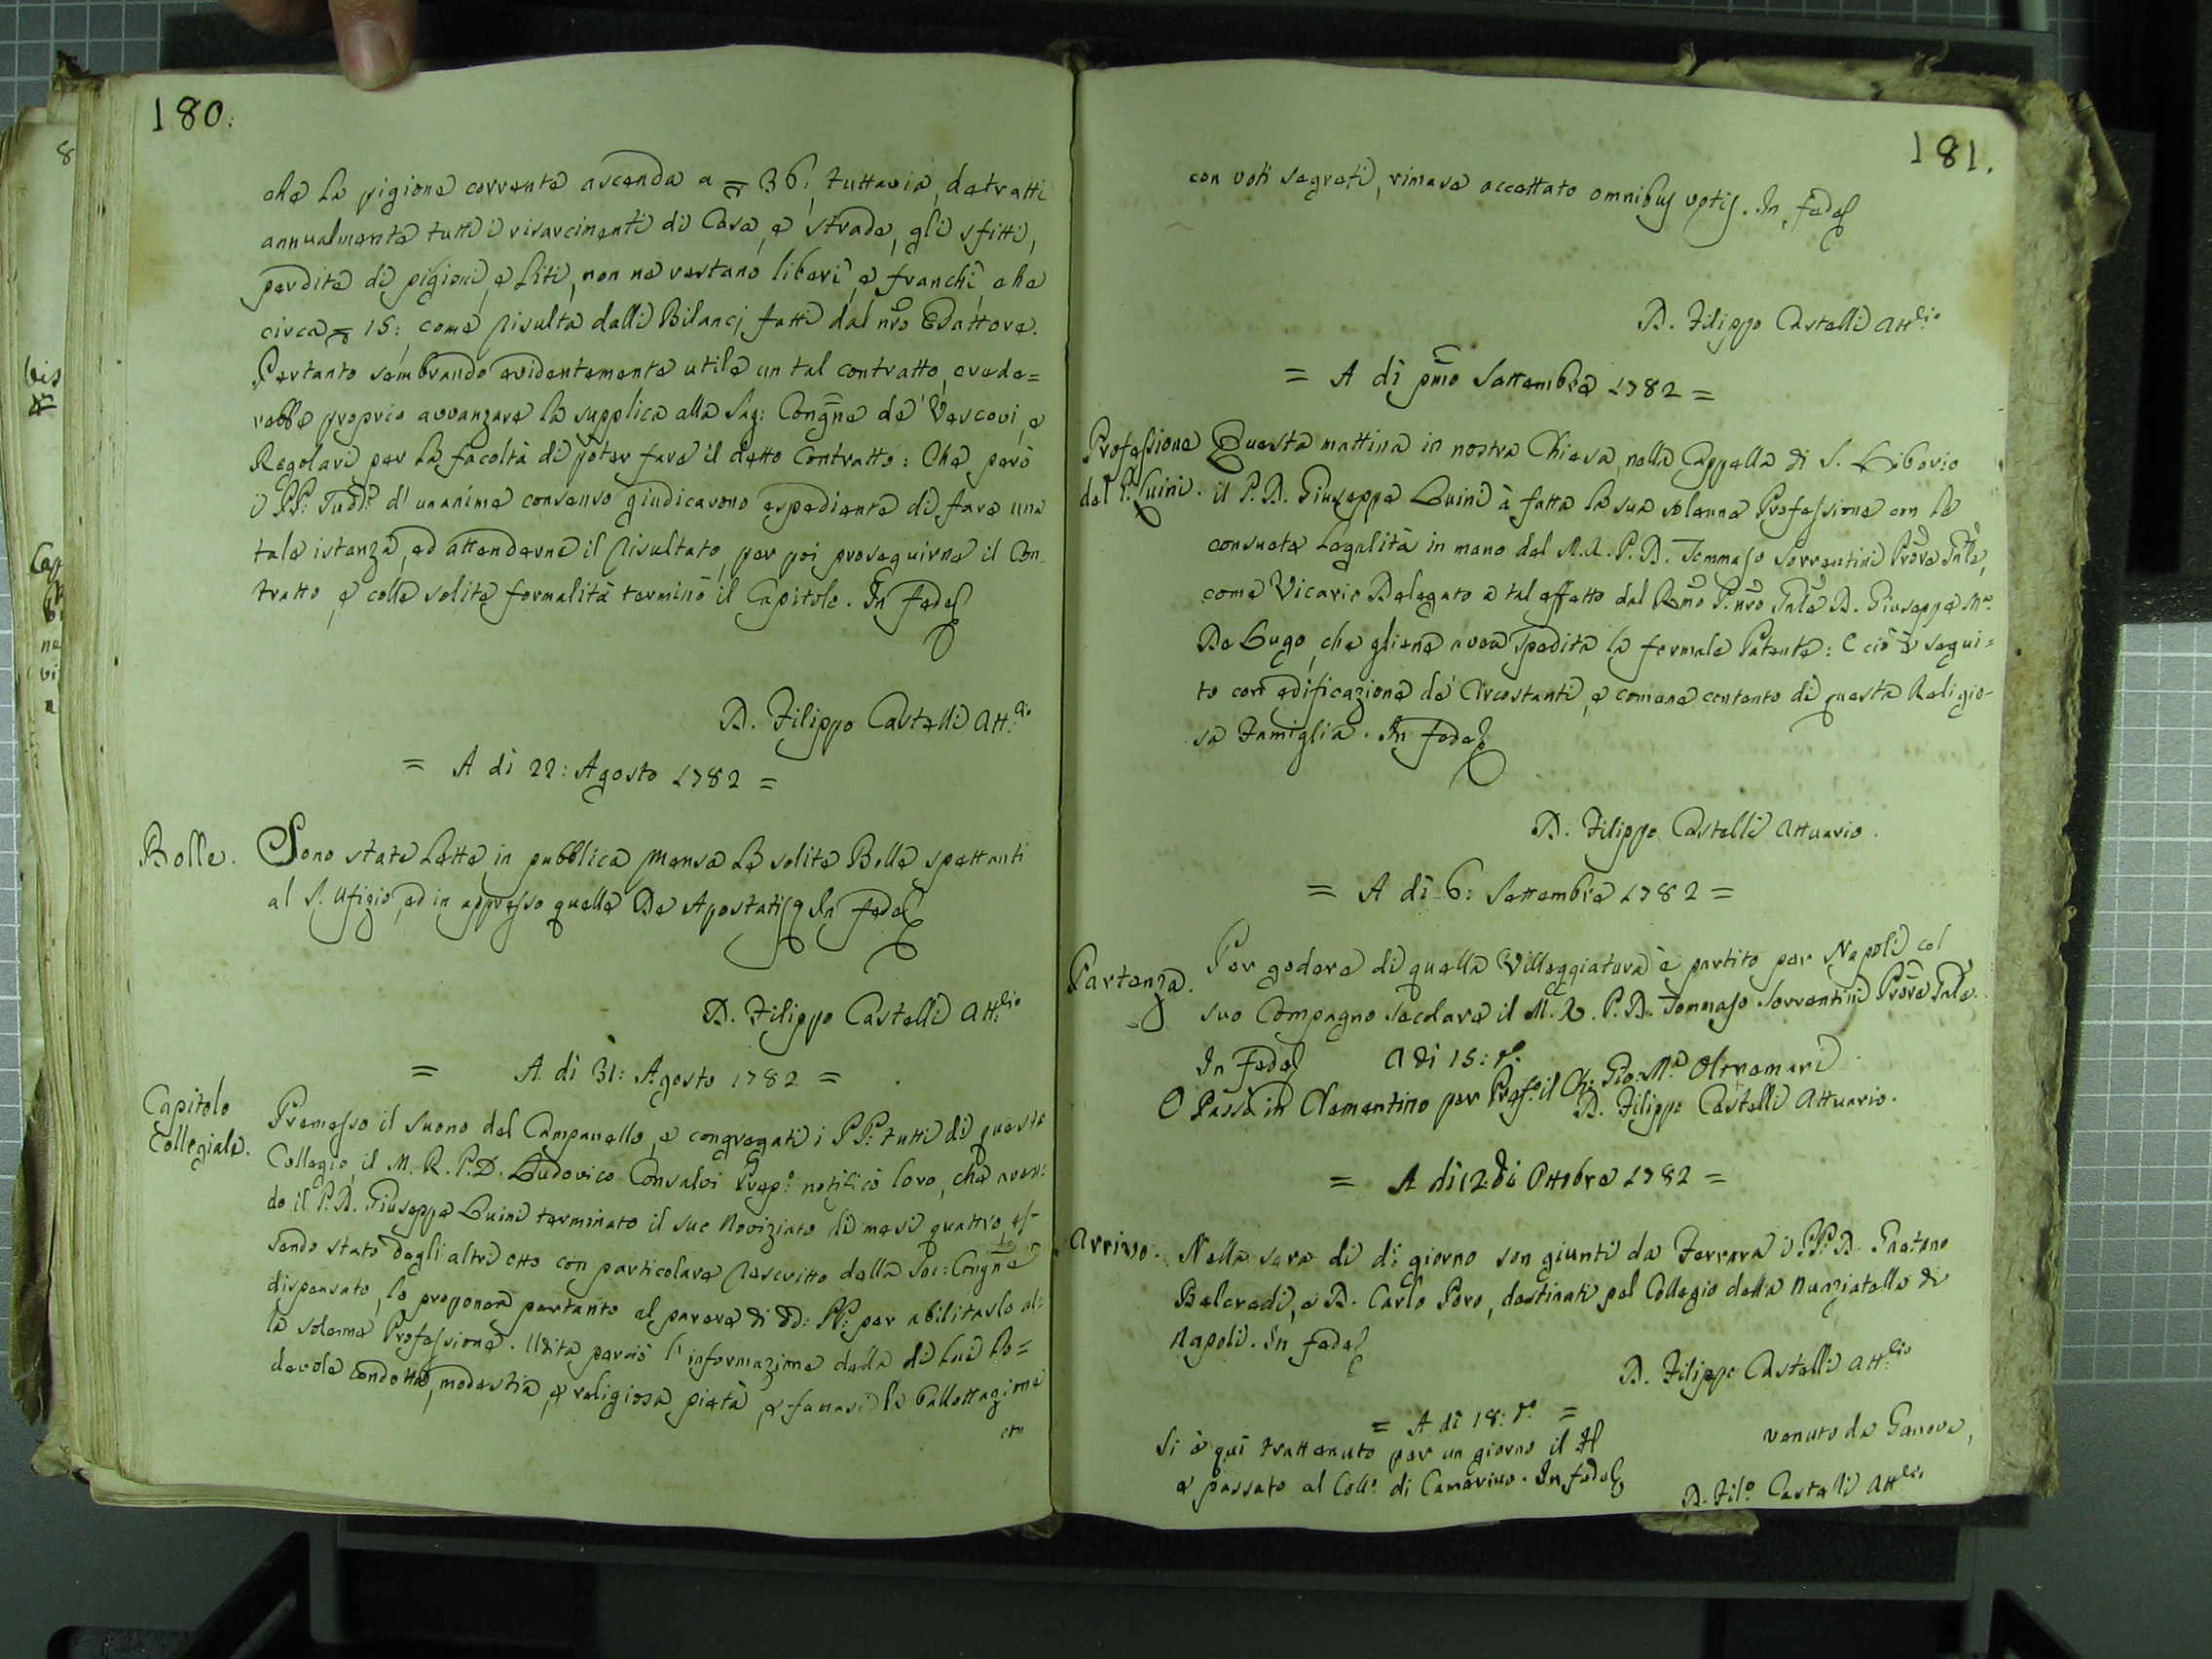 180:
che la pigione corrente ascenda a 36: tuttavia, detratti
annualmente tutti i risarcimenti di Casa, e strade, gli sfitti,
perdite di pigioni, e liti, non ne restano liberi, e franchi, che
circa 15: come risulta dalli Bilancj fatti dal nrõ Esattore.
Pertanto sembrando evidentemente utile un tal contratto, crede=
rebbe proprio avvanzare la supplica alla Sag: Congñe de' Vescovi, e
Regolari per la facoltà di poter fare il detto Contratto: Che però
i PP: sudd.i d'unanime consenso giudicarono espediente di fare una
tale istanza, ed attenderne il risultato, per poi proseguirne il Con-
tratto, e colle solite formalità terminò il Capitolo. In fede
D. Filippo Castelli Att:rio
= A di 22: Agosto 1782 =
Bolle. Sono state lette in pubblica mensa le solite Bolle spettanti
al S. Ufizio, ed in appresso quelle De Apostatis In fede
D. Filippo Castelli Att:rio
= A di 31: Agosto 1782 =
Capitolo
Collegiale.
Premesso il suono del Campanello, e congregati i PP: tutti di questo
Collegio, il M. R. P. D. Ludovico Consalvi Prep:o notificò loro, che aven=
do il P. D. Giuseppe Luini terminato il suo Noviziato di mesi quattro, es-
sendo stato degli altri otto con particolare rescritto della Congñe
dispensato, lo proponea pertanto al parere di dd: PP: per abilitarlo al=
la solenne Professione. Udita perciò l'informazione della di lui lo=
devole condotta, modestia, e religiosa pietà, e fattasi la ballottazione
con
181.
con voti segreti, rimase accettato omnibus votis. In fede
D. Filippo Castelli Att:rio
= A di pmõ Settembre 1782 =
Professione
del P. Luini.
Questa mattina in nostra Chiesa, nella Cappella di S. Liborio
il P. D. Giuseppe Luini à fatta la sua solenne Professione con le
consuete legalità in mano del M. R. P. D. Tommaso Sorrentini Prõre Gñle,
come Vicario Delegato a tal effetto dal Rmõ P. nrõ Gñle D. Giuseppe M.a
De Lugo, che gliene avea spedita la formale Patente: E ciò è segui=
to con edificazione de' Circostanti, e comune contento di questa Religio-
sa Famiglia. In fede
D. Filippo Castelli Attuario.
= A di 6: Settembre 1782 =
Partenza.
Per godere di quella Villeggiatura è partito per Napoli col
suo Compagno secolare il M. R. P. D. Tommaso Sorrentini Prõre Gñle.
In fede A di 15: d.o
Passò in Clementino per Pref.o il Ch: Gio: M.a Oltremari
D. Filippo Castelli Attuario.
= A di 12: di Ottobre 1782 =
Arrivo. Nella sera di dì giorno son giunti da Ferrara i PP: D. Gaetano
Belcredi, e D. Carlo Poro, destinati pel Collegio della Nunziatella di
Napoli. In fede
D. Filippo Castelli Att:rio
= A di 18: d.o =
Si è quì trattenuto per un giorno il venuto da Genova,
e passato al Coll.o di Camerino. In fede
D. Fil.o Castelli Att:rio